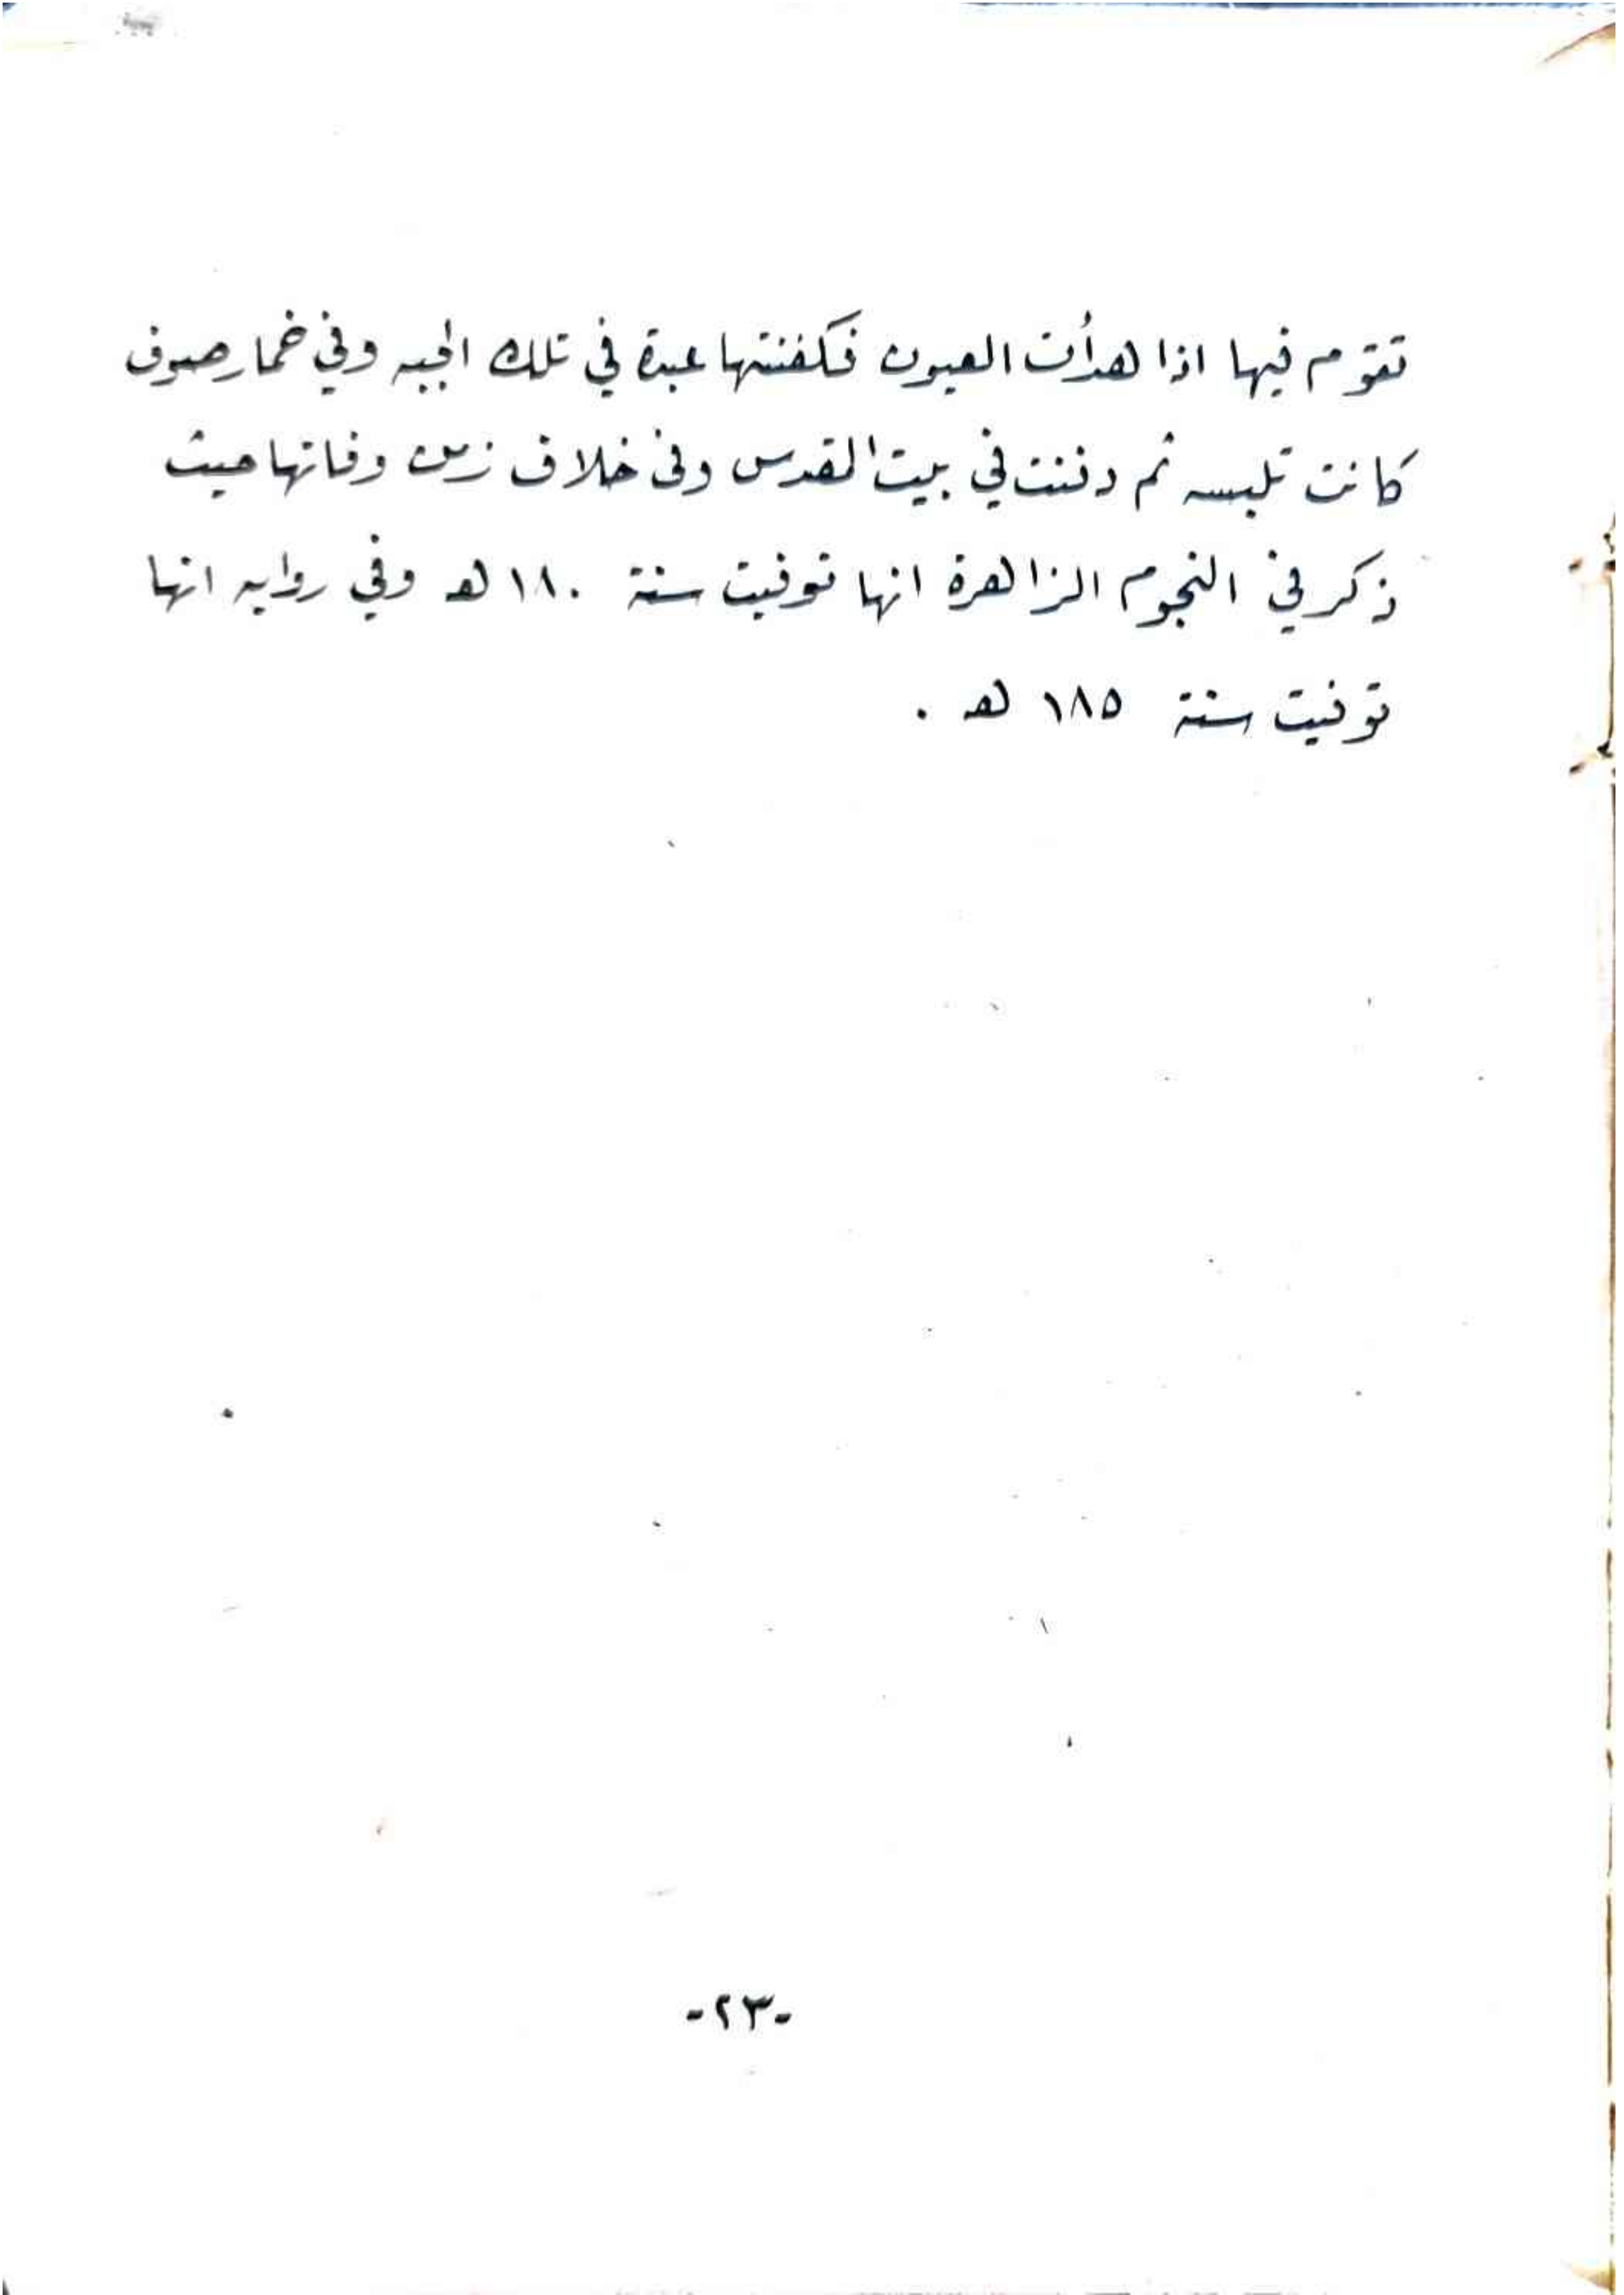 تقوم فيها اذا هدأت العيون فكفنتها عبدة في تلك الجبه وفي خمار صوف
كانت تلبسه ثم دفنت في بيت المقدس وفي خلاف زمن وفاتها حيث
ذكر في النجوم الزاهرة انها توفيت سنة ١٨٠ هـ وفي روايه انها
توفيت سنة ١٨٥ هـ .
-٢٣-